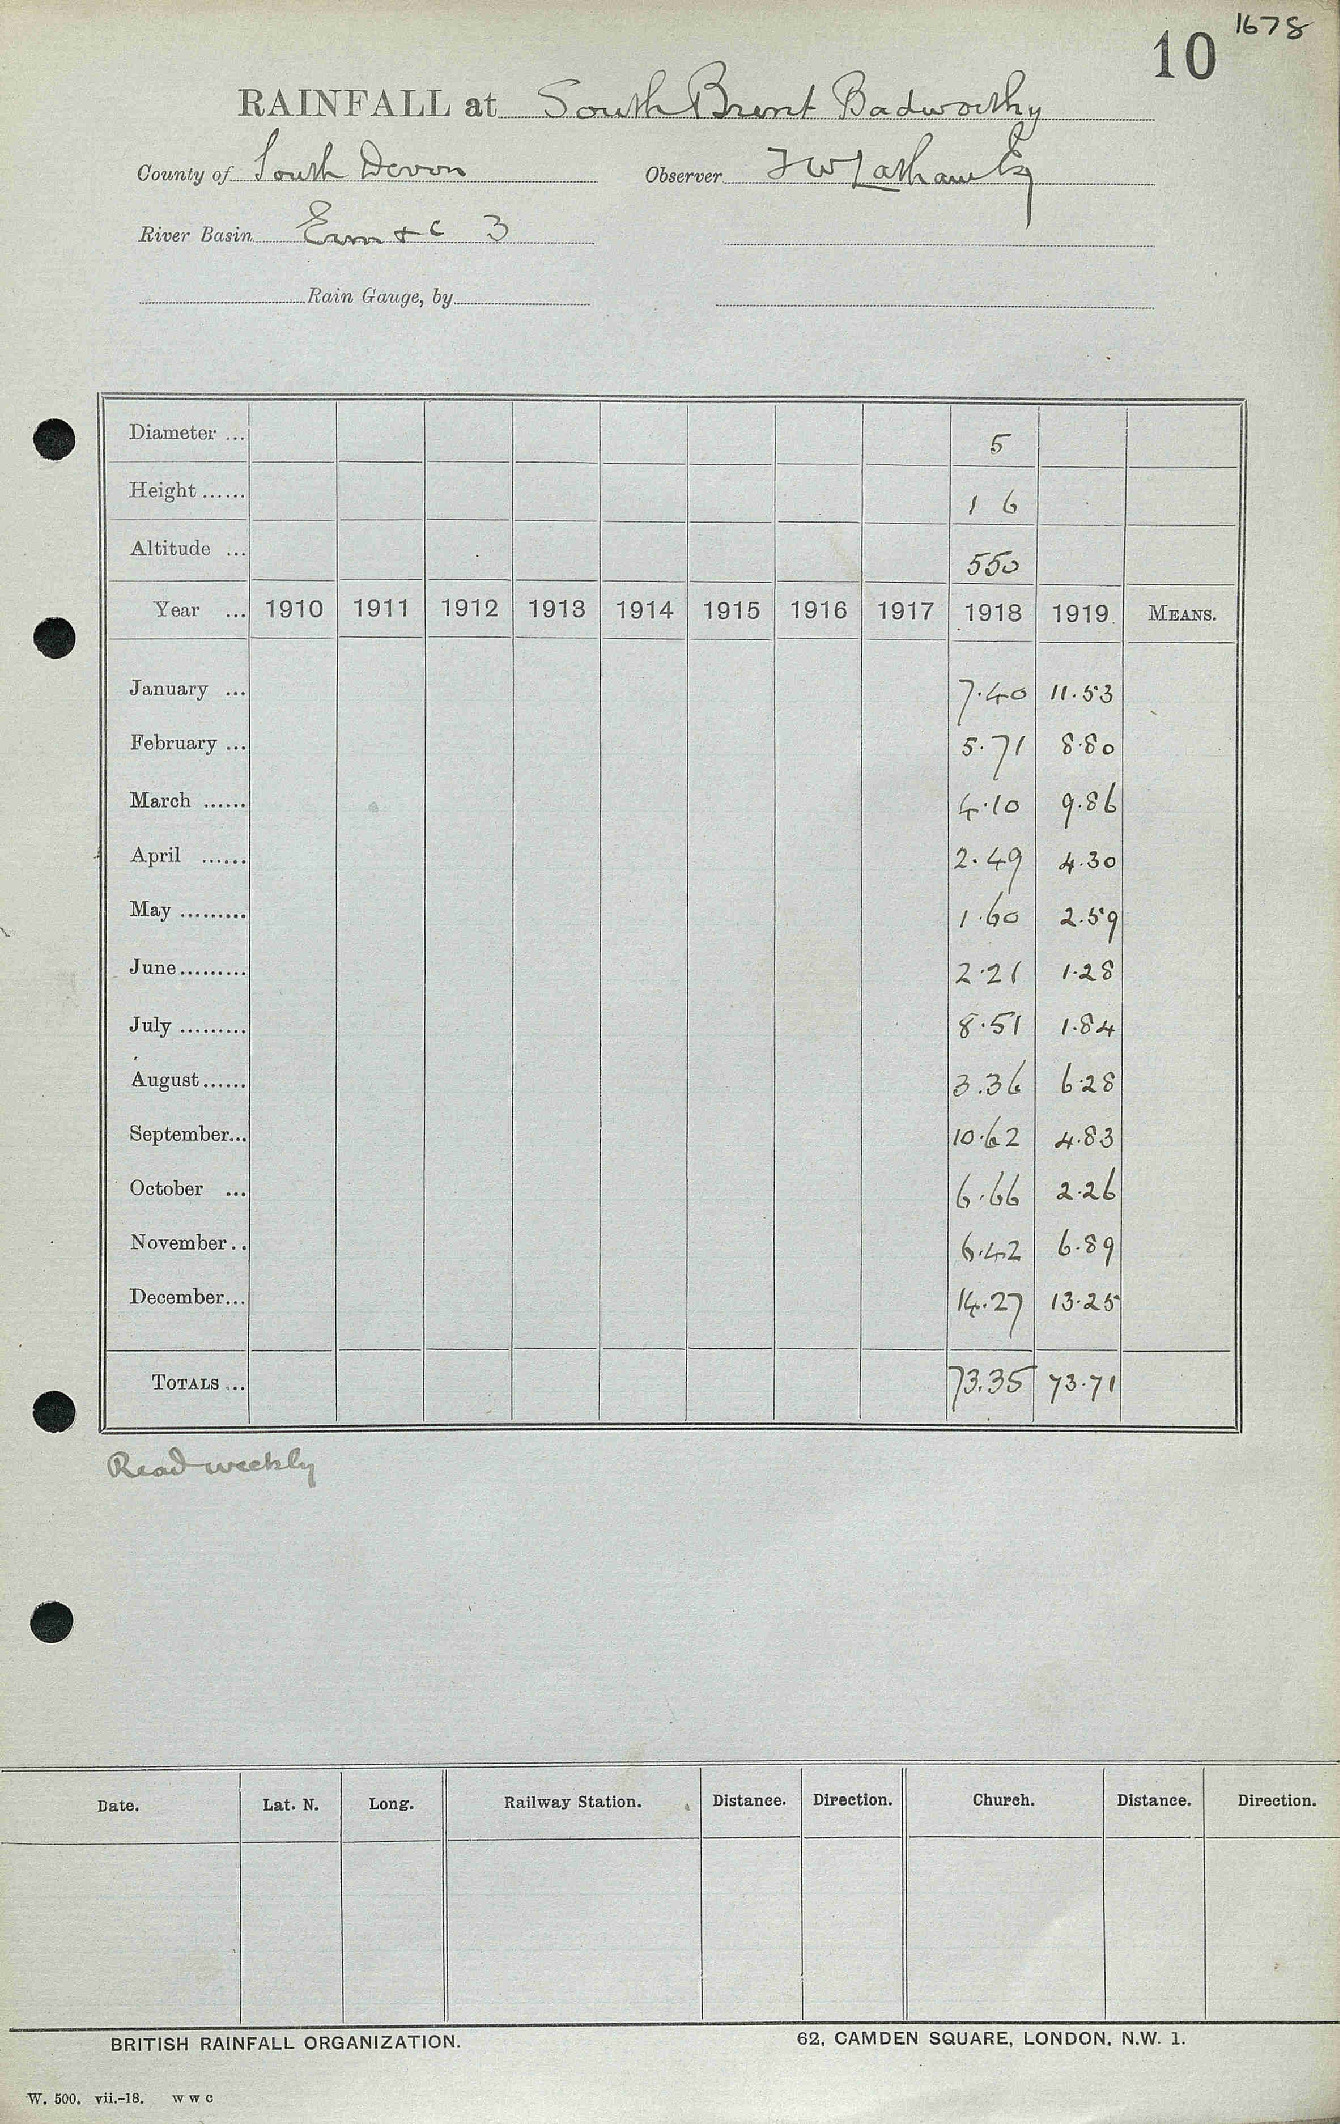 1678
10
RAINFALL at South Brent Badworthy
County of South Devon Observer F W Latham Esq
River Basin Erm + c 3
Rain Gauge, by
Diameter ... 5
Height ...... 1 6
Altitude ... 550
Year ... 1910 1911 1912 1913 1914 1915 1916 1917 1918 1919. MEANS.
January ... 7.40 11.53
February ... 5.71 8.80
March ...... 4.10 9.86
April ...... 2.49 4.30
May ......... 1.60 2.59
June ......... 2.21 1.28
July ......... 8.51 1.84
August ...... 3.36 6.28
September... 10.62 4.83
October ... 6.66 2.26
November .. 6.42 6.89
December... 14.27 13.25
TOTALS ... 73.35 73.71
Read weekly
Date. Lat. N. Long. Railway Station. Distance. Direction. Church. Distance. Direction.
BRITISH RAINFALL ORGANIZATION. 62, CAMDEN SQUARE, LONDON, N.W. 1.
W. 500. vii.-18. w w c